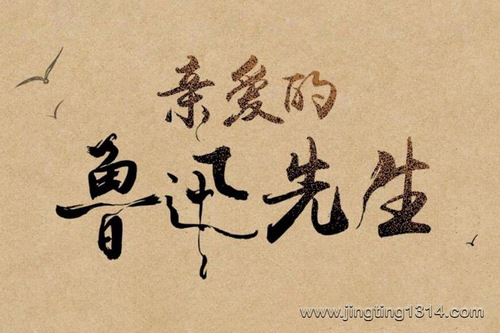 亲爱的
鲁迅先生
www.jingting1314.com